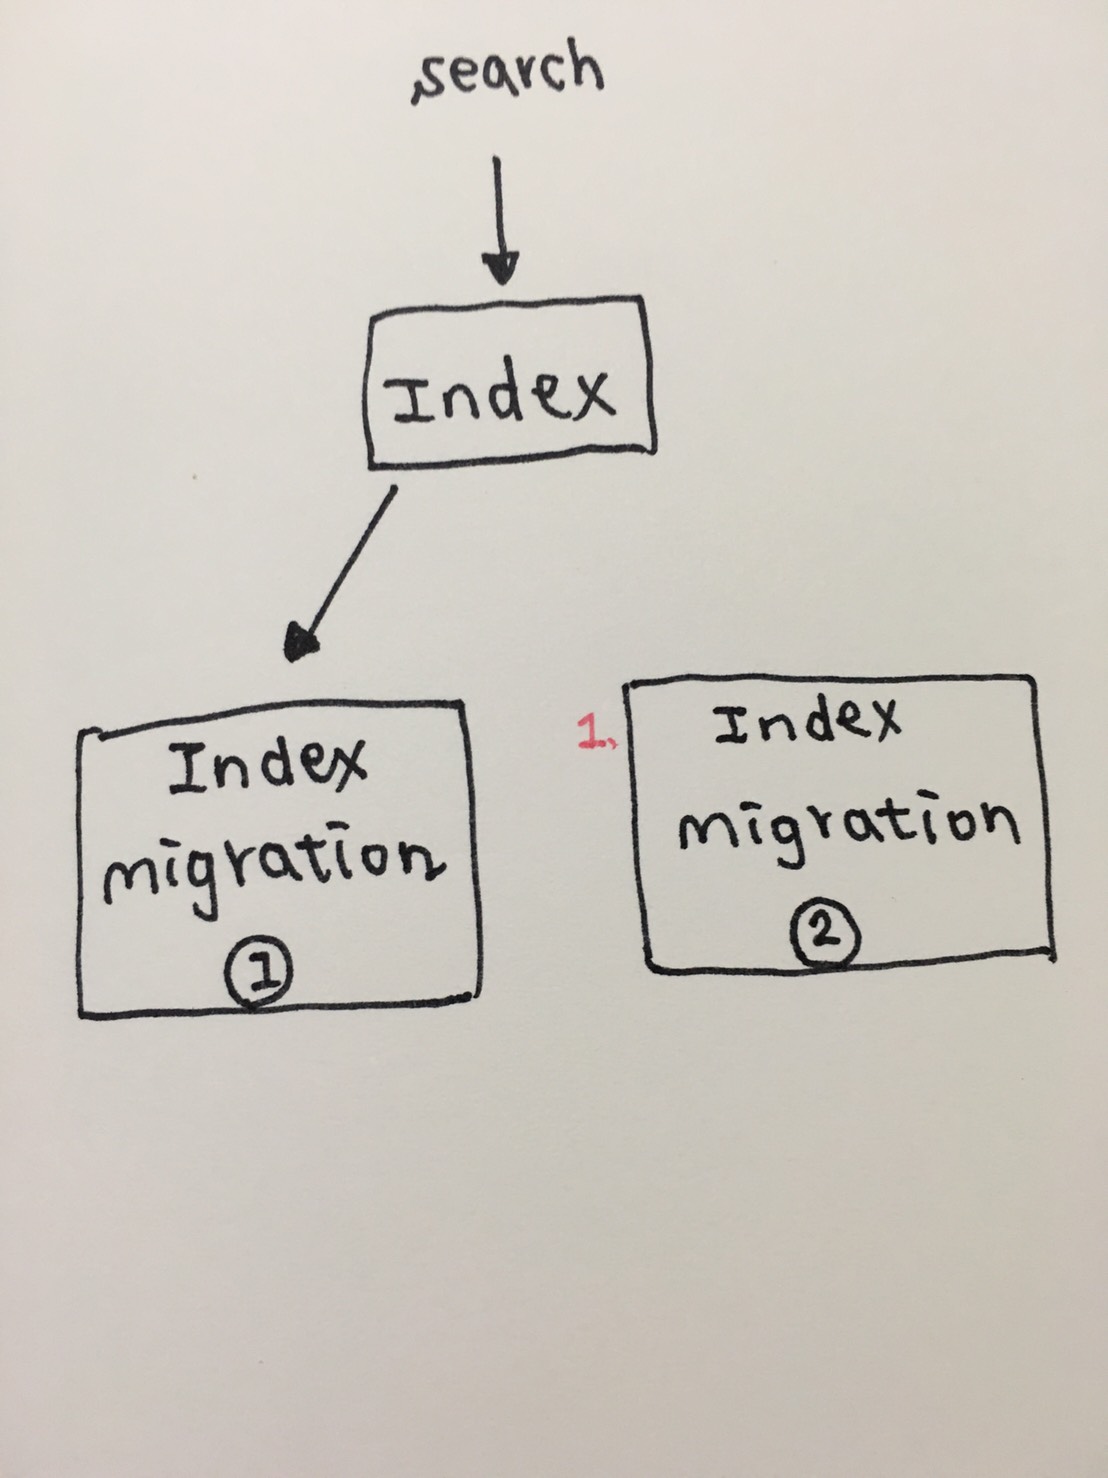 search
Index
Index
migration
①
1.
Index
migration
②